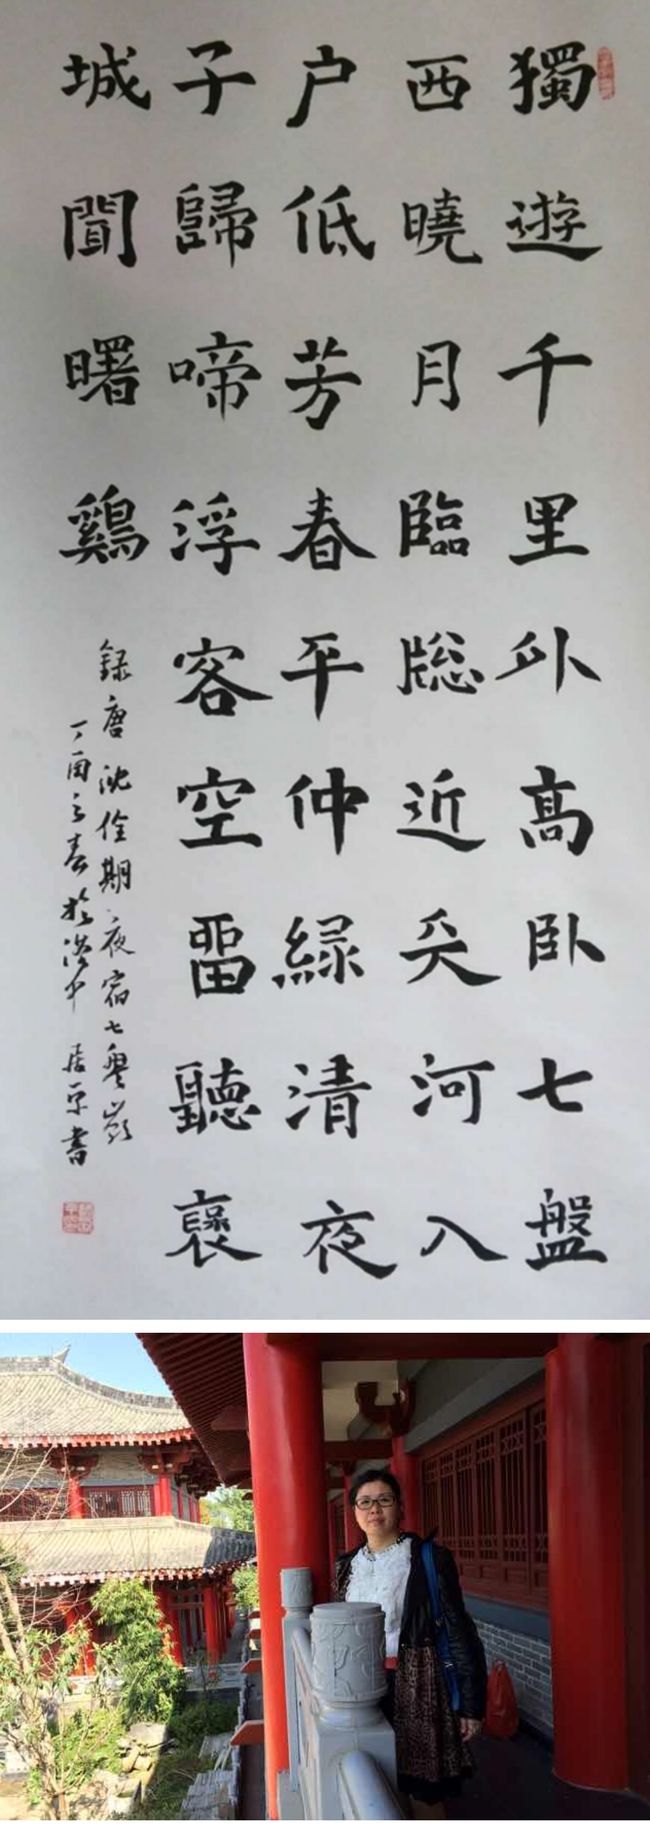 獨遊千里外高卧七盤
西曉月臨牕近天河入
户低芳春平仲緑清夜
子歸啼浮客空畱聽褒
城聞曙鷄
録唐沈佺期夜宿七盤嶺
丁酉之春於洛中 書